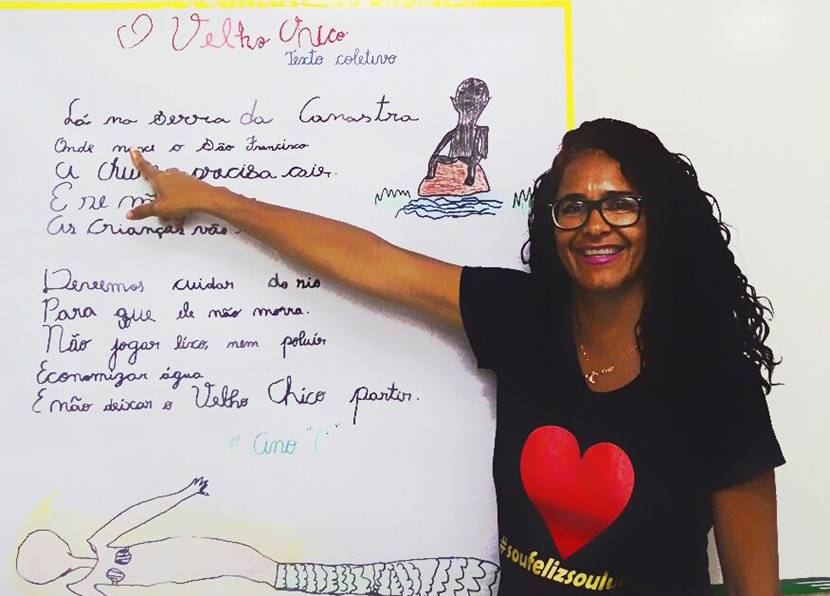 O Velho Chico
Texto coletivo
Lá na serra da Canastra
Onde nasce o São Francisco
A chuva precisa cair.
E se não
As crianças vão
Devemos cuidar do rio
Para que ele não morra.
Não jogar lixo, nem poluir
Economizar água
E não deixar o Velho Chico partir.
1º Ano "C"
#soufelizsoulu